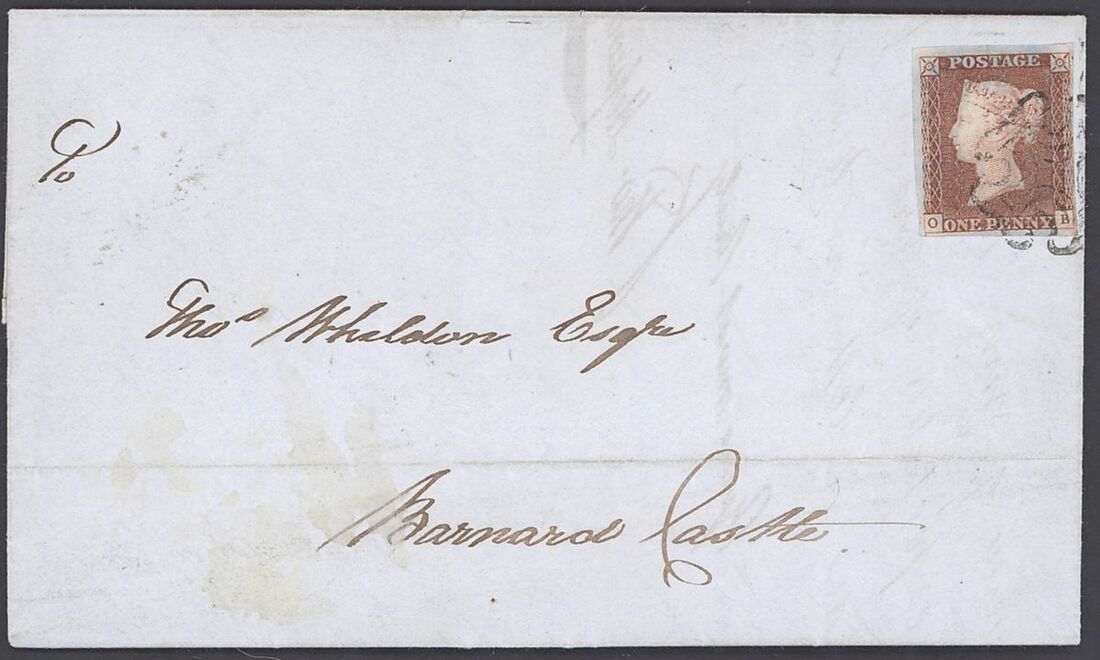 POSTAGE
O ONE PENNY B
To
Thos Wheldon Esqre
Barnard Castle